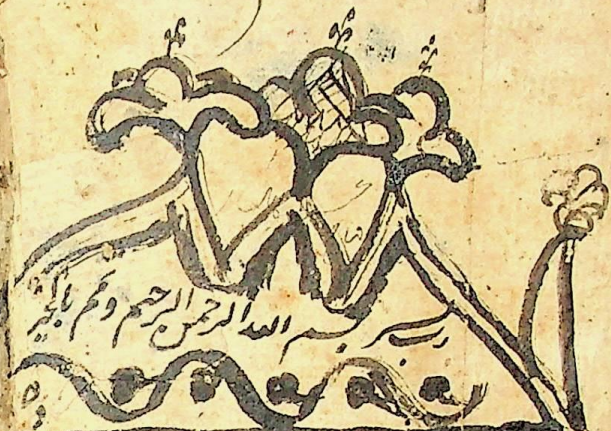 رب يسر بسم الله الرحمن الرحيم وتمم بالخير